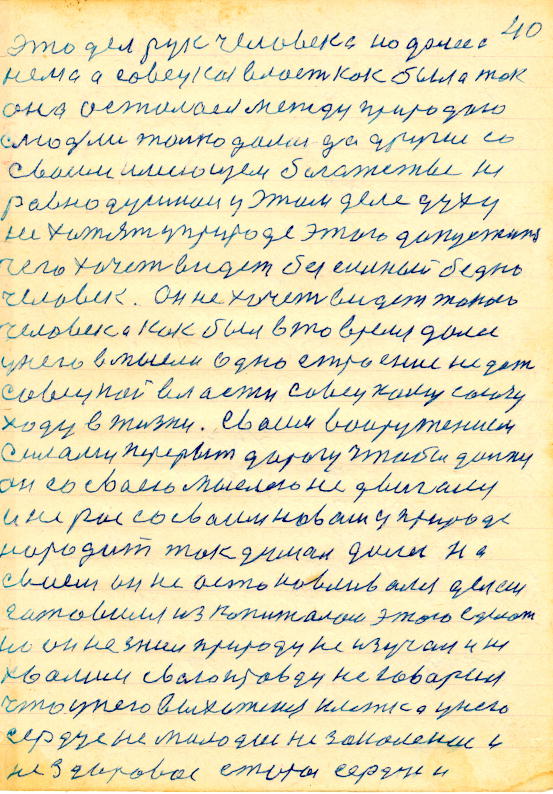 40
это дел рук человека но долеса
нема а совецкая власт как была так
она осталася между природою
людми толко далы да другие со
своем имеющем богатстве ни
равнодушнаи у этом деле духу
не хотят у природе этого допустит
чего хочет видет бессилный бедно
человек. Он не хочет видет такого
человека как был в то время доле
у него в мысли одно строение не дат
совецкой власти совецкому союзу
ходу в жизни. Своем вооружением
силами перерыт дорогу чтобы далши
он со своею мыслею не двигалу
и не рос со своим новаму природе
народит так думал долес на
своем он не остоновливался делом
готовилис из капиталом этого сделат
но он не знал природу не изучал и не
хвалил свою правду не говарил
что у него выхожения клетка у него
сердце не молодое не закаленое и
не здоровое старое сердце и